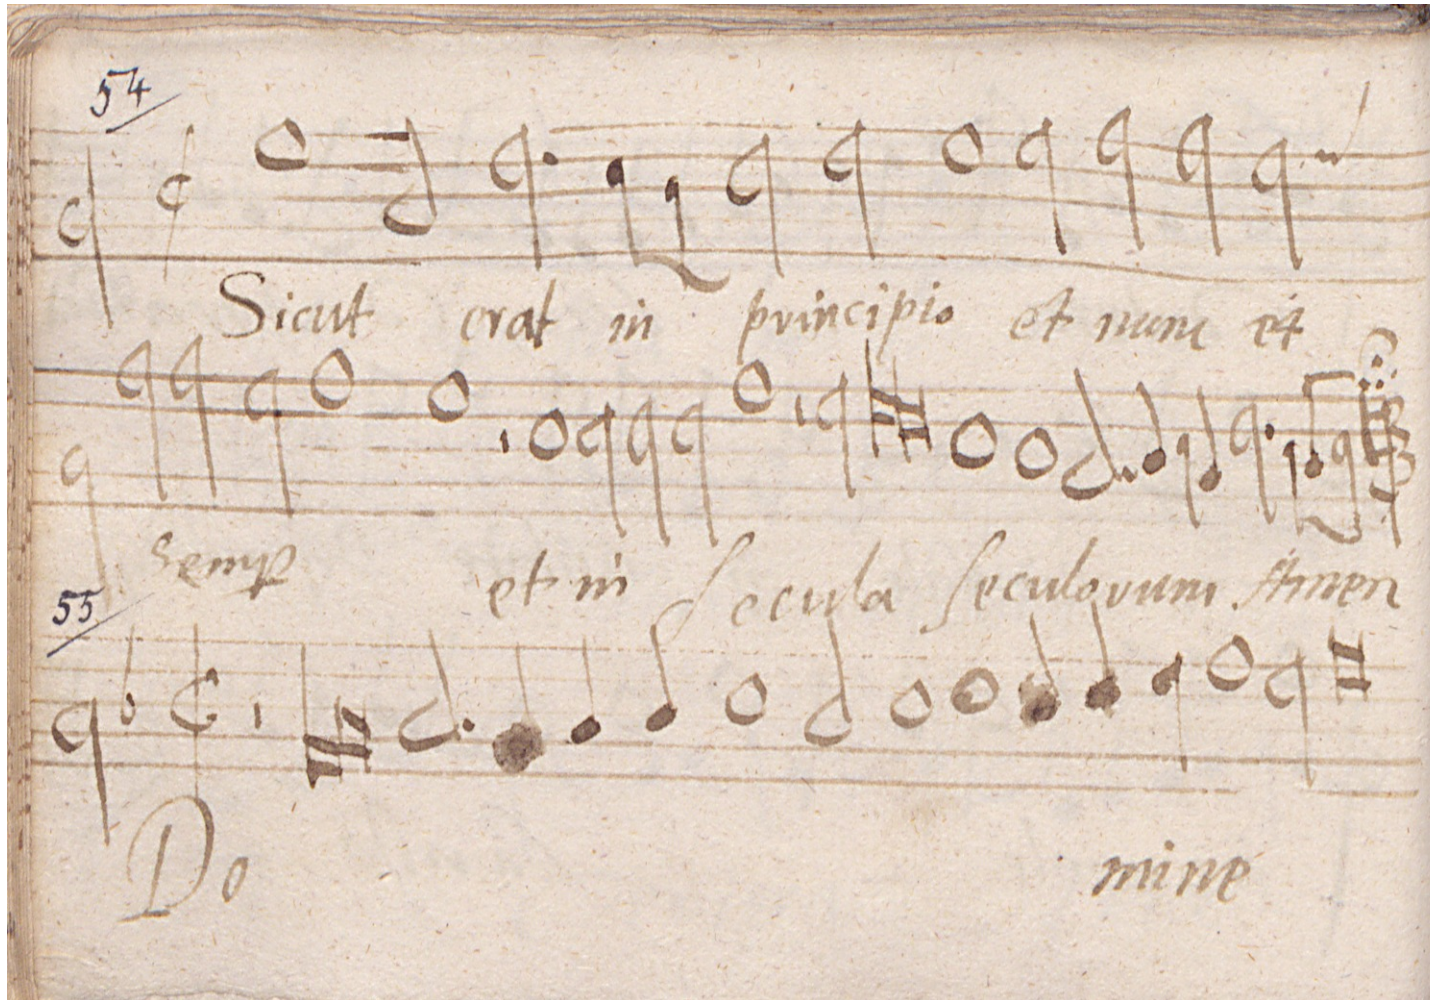 54
Sicut erat in principio et nunc et
semp et in secula seculorum Amen
55
Do mine